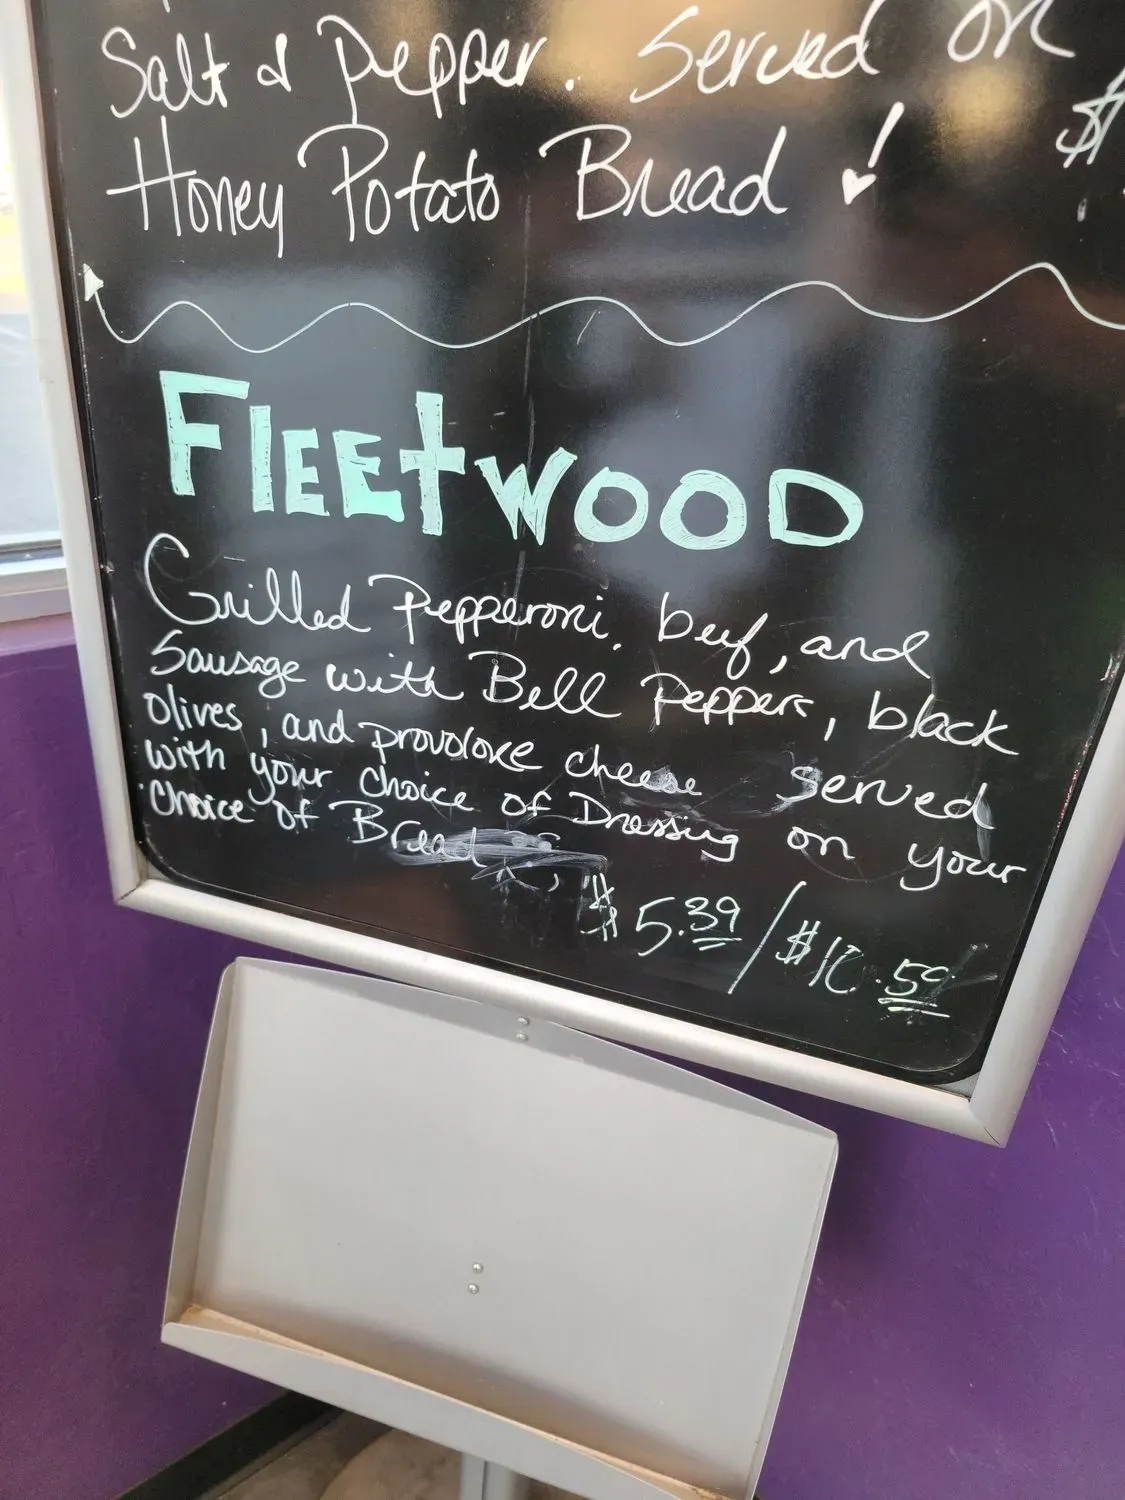 Salt & Pepper. Served on
Honey Potato Bread !
$
FLEEtWOOD
Grilled Pepperoni, beef, and
Sausage with Bell Peppers, black
Olives, and provolone cheese served
with your choice of Dressing on your
choice of Bread
$5.39/$10.50